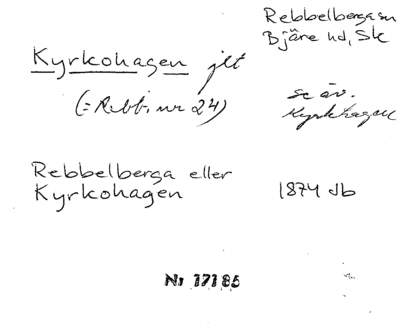 Rebbelberga sn
Bjäre hd, Sk
Kyrkohagen jlt
(= Rebb. nr 24)
se äv.
Kyrkhagen
Rebbelberga eller
Kyrkohagen
1874 db
Nr 17185